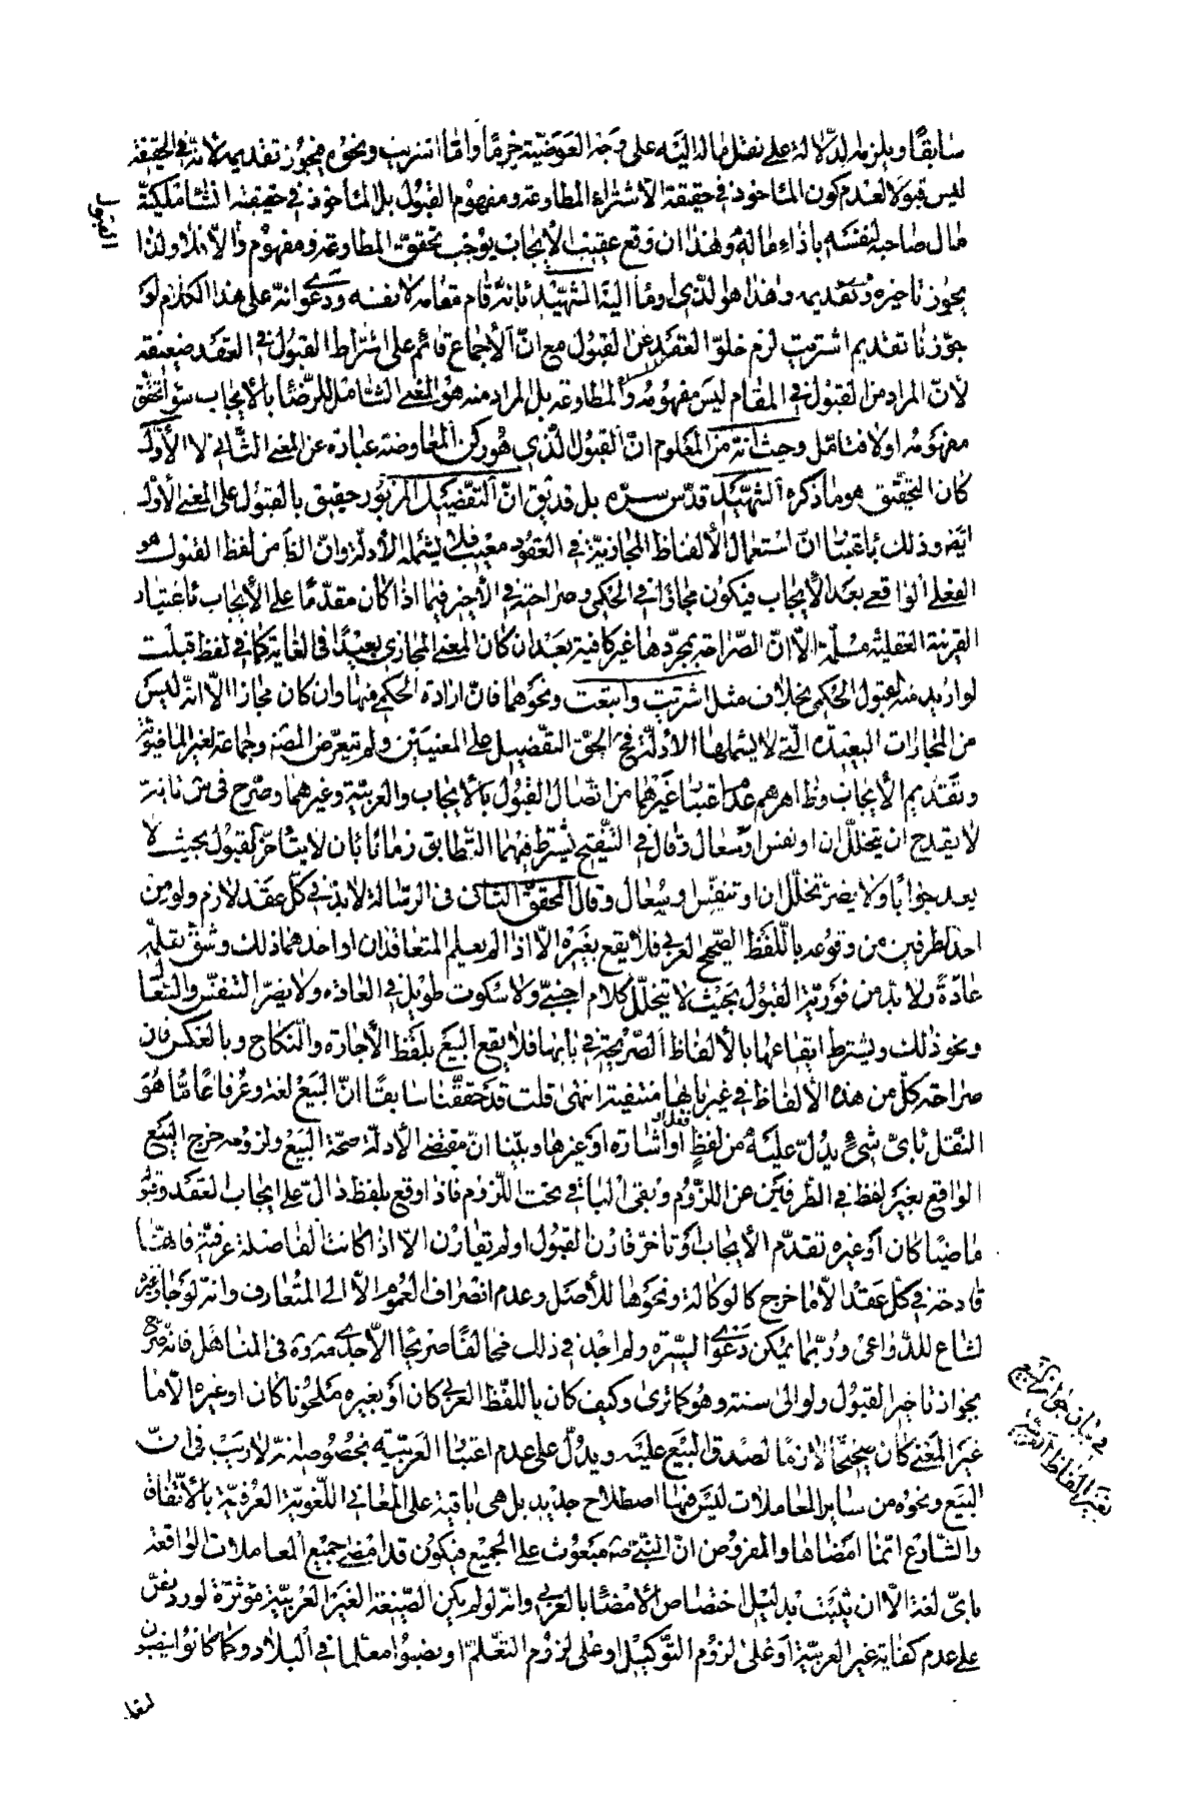 سابقا ويلزمه الدلالة على نقل ماله اليه على وجه العوضية جزما واما اشتريت ونحوه فيجوز تقديمه لانه في الحقيقة
ليس قبولا لعدم كون المأخوذ في حقيقة الاشتراء المطاوعة ومفهوم القبول بل المأخوذ في حقيقته انشاء ملكية
القبول
مال صاحبه لنفسه بازاء ماله ولهذا ان وقع عقيب الايجاب يوجب تحقق المطاوعة ومفهوم والا فلا ولذا
يجوز تاخيره وتقديمه وهذا هو الذي اومأ اليه الشهيد بانه قام مقامه لا نفسه ودعوى انه على هذا الكلام لو
جوزنا تقديم اشتريت لزم خلو العقد عن القبول مع ان الاجماع قائم على اشتراط القبول في العقد ضعيفة
لان المراد من القبول في المقام ليس مفهومه والمطاوعة بل المراد منه هو المعنى الشامل للرضا بالايجاب سواء تحقق
مفهومه اولا فتامل وحيث انه من المعلوم ان القبول الذي هو ركن المعاوضة عبارة عن المعنى الثاني لا الاول
كان التحقيق هو ما ذكره الشهيد قدس سره بل قد يق ان التفصيل المزبور حقيق بالقبول على المعنى الاول
ايضا وذلك باعتبار ان استعمال الالفاظ المجازية في العقود معيب فلا يشمله الادلة وان الظ من لفظ القبول هو
الفعلي الواقع بعد الايجاب فيكون مجازا في الحكمي وصراحته في الاخير فيما اذا كان مقدما على الايجاب باعتبار
القرينة العقلية مسلمة الا ان الصراحة بمجردها غير كافية بعد ان كان المعنى المجازي بعيدا في الغاية كما في لفظ قبلت
لو اريد منه القبول الحكمي بخلاف مثل اشتريت وابتعت ونحوهما فان ارادة الحكمي منها وان كان مجازا الا انه ليس
من المجازات البعيدة التي لا يشملها الادلة فح الحق التفصيل على المعنيين ولم يتعرض المصنف وجماعة لغير الماضوية
وتقديم الايجاب وظاهرهم عدم اعتبار غيرهما من اتصال القبول بالايجاب والعربية وغيرهما وصرح في س بانه
لا يقدح ان يتخلل ان او نفس او سعال وقال في التنقيح يشترط فيهما التطابق زمانا بان لا يتاخر القبول بحيث لا
يعد جوابا ولا يضر تخلل ان او تنفس او سعال وقال المحقق الثاني في الرسالة لا بد في كل عقد لازم ولو من
احد الطرفين من وقوعه باللفظ الصحيح العربي فلا يقع بغيره الا اذا لم يعلم المتعاقدان او احدهما ذلك وشق تعلمه
عادة ولا بد من فورية القبول بحيث لا يتخلل كلام اجنبي ولا سكوت طويل في العادة ولا يضر التنفس والسعال
ونحو ذلك ويشترط ايقاعها بالالفاظ الصريحة في بابها فلا يقع البيع بلفظ الاجارة والنكاح وبالعكس فان
صراحة كل من هذه الالفاظ في غير بابها منتفية انتهى قلت قد حققنا سابقا ان البيع لغة وعرفا عاما هو
النقل باي شيء يدل عليه من لفظ او اشارة او غيرها وبينا ان مقتضى الادلة صحة البيع ولزومه خرج البيع
الواقع بغير لفظ في الطرفين عن اللزوم وبقى الباقي تحت اللزوم فاذا وقع بلفظ دال على ايجاب العقد وقبوله
ماضيا كان او غيره تقدم الايجاب او تاخر قارن القبول او لم يقارن الا اذا كانت الفاصلة عرفية فانها
قادحة في كل عقد الا ما خرج كالوكالة ونحوها للاصل وعدم انصراف العموم الا الى المتعارف وانه لو جاز غيره
لشاع للدواعي وربما يمكن دعوى السيرة ولم اجد في ذلك مخالفا صريحا الا جدي قده في المناهل فانه صرح
بجواز تاخير القبول ولو الى سنة وهو كما ترى وكيف كان باللفظ العربي كان او بغيره ملحونا كان او غيره الا ما
في بيان جواز البيع
بغير الفاظ العربية
غير المعنى كان صحيحا لازما لصدق البيع عليه ويدل على عدم اعتبار العربية بخصوصه انه لا ريب في ان
البيع ونحوه من ساير المعاملات ليس فيها اصطلاح جديد بل هي باقية على المعاني اللغوية العرفية بالاتفاق
والشارع انما امضاها والمفروض ان النبي ص مبعوث على الجميع فيكون قد امضى جميع المعاملات الواقعة
باي لغة الا ان يثبت بدليل اختصاص الامضاء بالعربي وانه لو لم يكن الصيغة الغير العربية مؤثرة لورد نص
على عدم كفاية غير العربية او على لزوم التوكيل او على لزوم التعلم او ينصبوا معلما في البلاد وكما كانوا ينصبون
لنقل